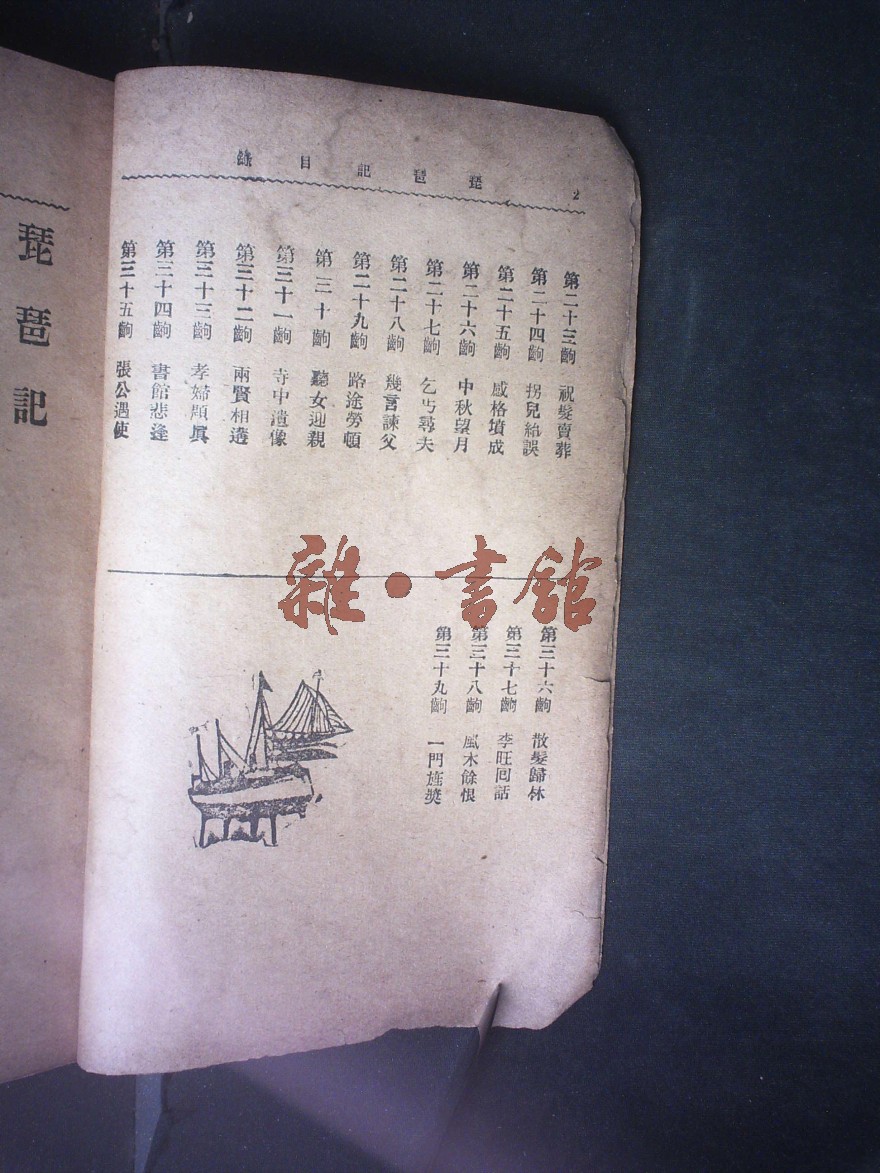 琵琶記目錄
2
第二十三齣 祝髮賣葬
第二十四齣 拐兒紿誤
第二十五齣 感格墳成
第二十六齣 中秋望月
第二十七齣 乞丐尋夫
第二十八齣 幾言諫父
第二十九齣 路途勞頓
第三十齣 聽女迎親
第三十一齣 寺中遺像
第三十二齣 兩賢相遘
第三十三齣 孝婦題眞
第三十四齣 書館悲逢
第三十五齣 張公遇使
第三十六齣 散髮歸林
第三十七齣 李旺回話
第三十八齣 風木餘恨
第三十九齣 一門旌奬
琵琶記
雜·書館